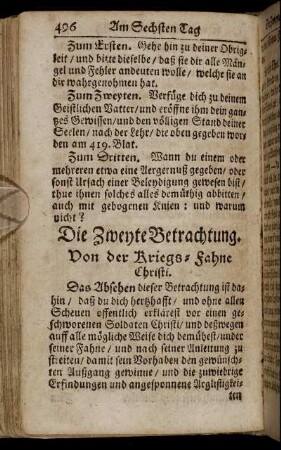 496 Am Sechsten Tag
Zum Ersten. Gehe hin zu deiner Obrig-
keit / und bitte dieselbe / daß sie dir alle Män-
gel und Fehler andeuten wolle / welche sie an
dir wahrgenommen hat.
Zum Zweyten. Verfüge dich zu deinem
Geistlichen Vatter / und eröffne ihm dein gan-
tzes Gewissen / und den völligen Stand deiner
Seelen / nach der Lehr / die oben gegeben wor-
den am 419. Blat.
Zum Dritten. Wann du einem oder
mehreren etwa eine Aergernuß gegeben / oder
sonst Ursach einer Beleydigung gewesen bist /
thue ihnen solches alles demüthig abbitten /
auch mit gebogenen Knien: und warum
nicht?
Die Zweyte Betrachtung.
Von der Kriegs-Fahne
Christi.
Das Absehen dieser Betrachtung ist da-
hin / daß du dich hertzhafft / und ohne allen
Scheuen offentlich erklärest vor einen ge-
schworenen Soldaten Christi / und deßwegen
auff alle mögliche Weise dich bemühest / under
seiner Fahne / und nach seiner Anleitung zu
streiten / damit sein Vorhaben den gewünsch-
ten Außgang gewinne / und die zuwiedrige
Erfindungen und angesponnene Arglistigkei-
ten